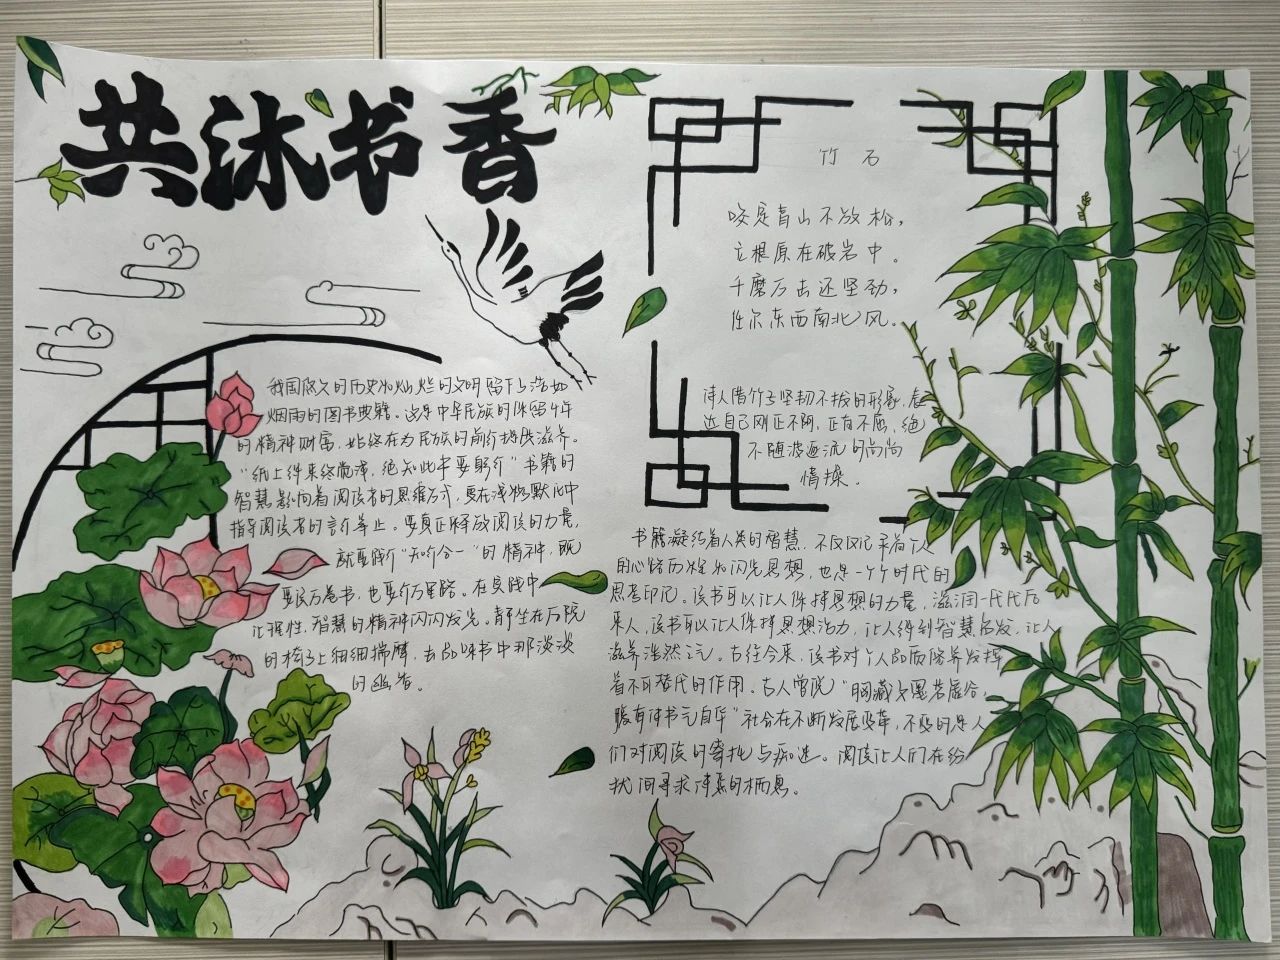 共沐书香
我国悠久的历史和灿烂的文明留下了浩如
烟雨的图书典籍。这是中华民族的保留千年
的精神财富，始终在为民族的前行提供滋养。
“纸上得来终觉浅，绝知此事要躬行”书籍的
智慧影响着阅读者的思维方式，更在潜移默化中
指导阅读者的言行举止。要真正释放阅读的力量，
就要践行“知行合一”的精神，既
要读万卷书，也要行万里路。在实践中
让理性，智慧的精神闪闪发光。静坐在后院
的椅子上细细揣摩，去品味书中那淡淡
的幽香。
竹石
咬定青山不放松，
立根原在破岩中。
千磨万击还坚劲，
任尔东西南北风。
诗人借竹子坚韧不拔的形象，表
达自己刚正不阿，正直不屈，绝
不随波逐流的高尚
情操。
书籍凝结着人类的智慧，不仅仅记录着个人
用心路历程和闪光思想，也是一个个时代的
思考印记。读书可以让人保持思想的力量，滋润一代代后
来人，读书可以让人保持思想活力，让人得到智慧启发，让人
滋养浩然之气。古往今来，读书对个人品而修养发挥
着不可替代的作用。古人曾说“胸藏文墨若虚谷，
腹有诗书气自华”社会在不断发展变革，不变的是人
们对阅读的寄托与痴迷。阅读让人们在纷
扰间寻求诗意的栖息。